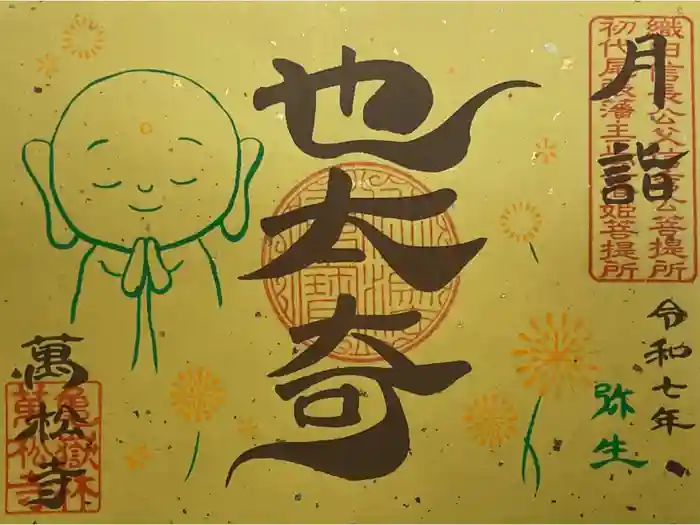 織田信長公父信秀公菩提所
初代尾張藩主正室春姫菩提所
月詣
也太奇
令和七年
弥生
萬松寺
亀嶽林
萬松寺